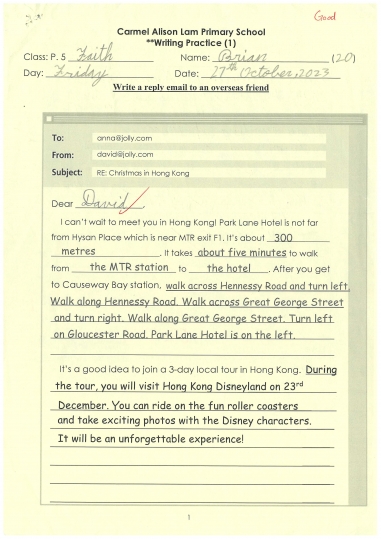 Good
Carmel Alison Lam Primary School
**Writing Practice (1)
Class: P. 5 Faith Name: Brian (20)
Day: Friday Date: 27th October, 2023
Write a reply email to an overseas friend
To: anna@jolly.com
From: david@jolly.com
Subject: RE: Christmas in Hong Kong
Dear David
I can't wait to meet you in Hong Kong! Park Lane Hotel is not far
from Hysan Place which is near MTR exit F1. It's about 300
metres. It takes about five minutes to walk
from the MTR station to the hotel. After you get
to Causeway Bay station, walk across Hennessy Road and turn left.
Walk along Hennessy Road. Walk across Great George Street
and turn right. Walk along Great George Street. Turn left
on Gloucester Road. Park Lane Hotel is on the left.
It's a good idea to join a 3-day local tour in Hong Kong. During
the tour, you will visit Hong Kong Disneyland on 23rd
December. You can ride on the fun roller coasters
and take exciting photos with the Disney characters.
It will be an unforgettable experience!
1